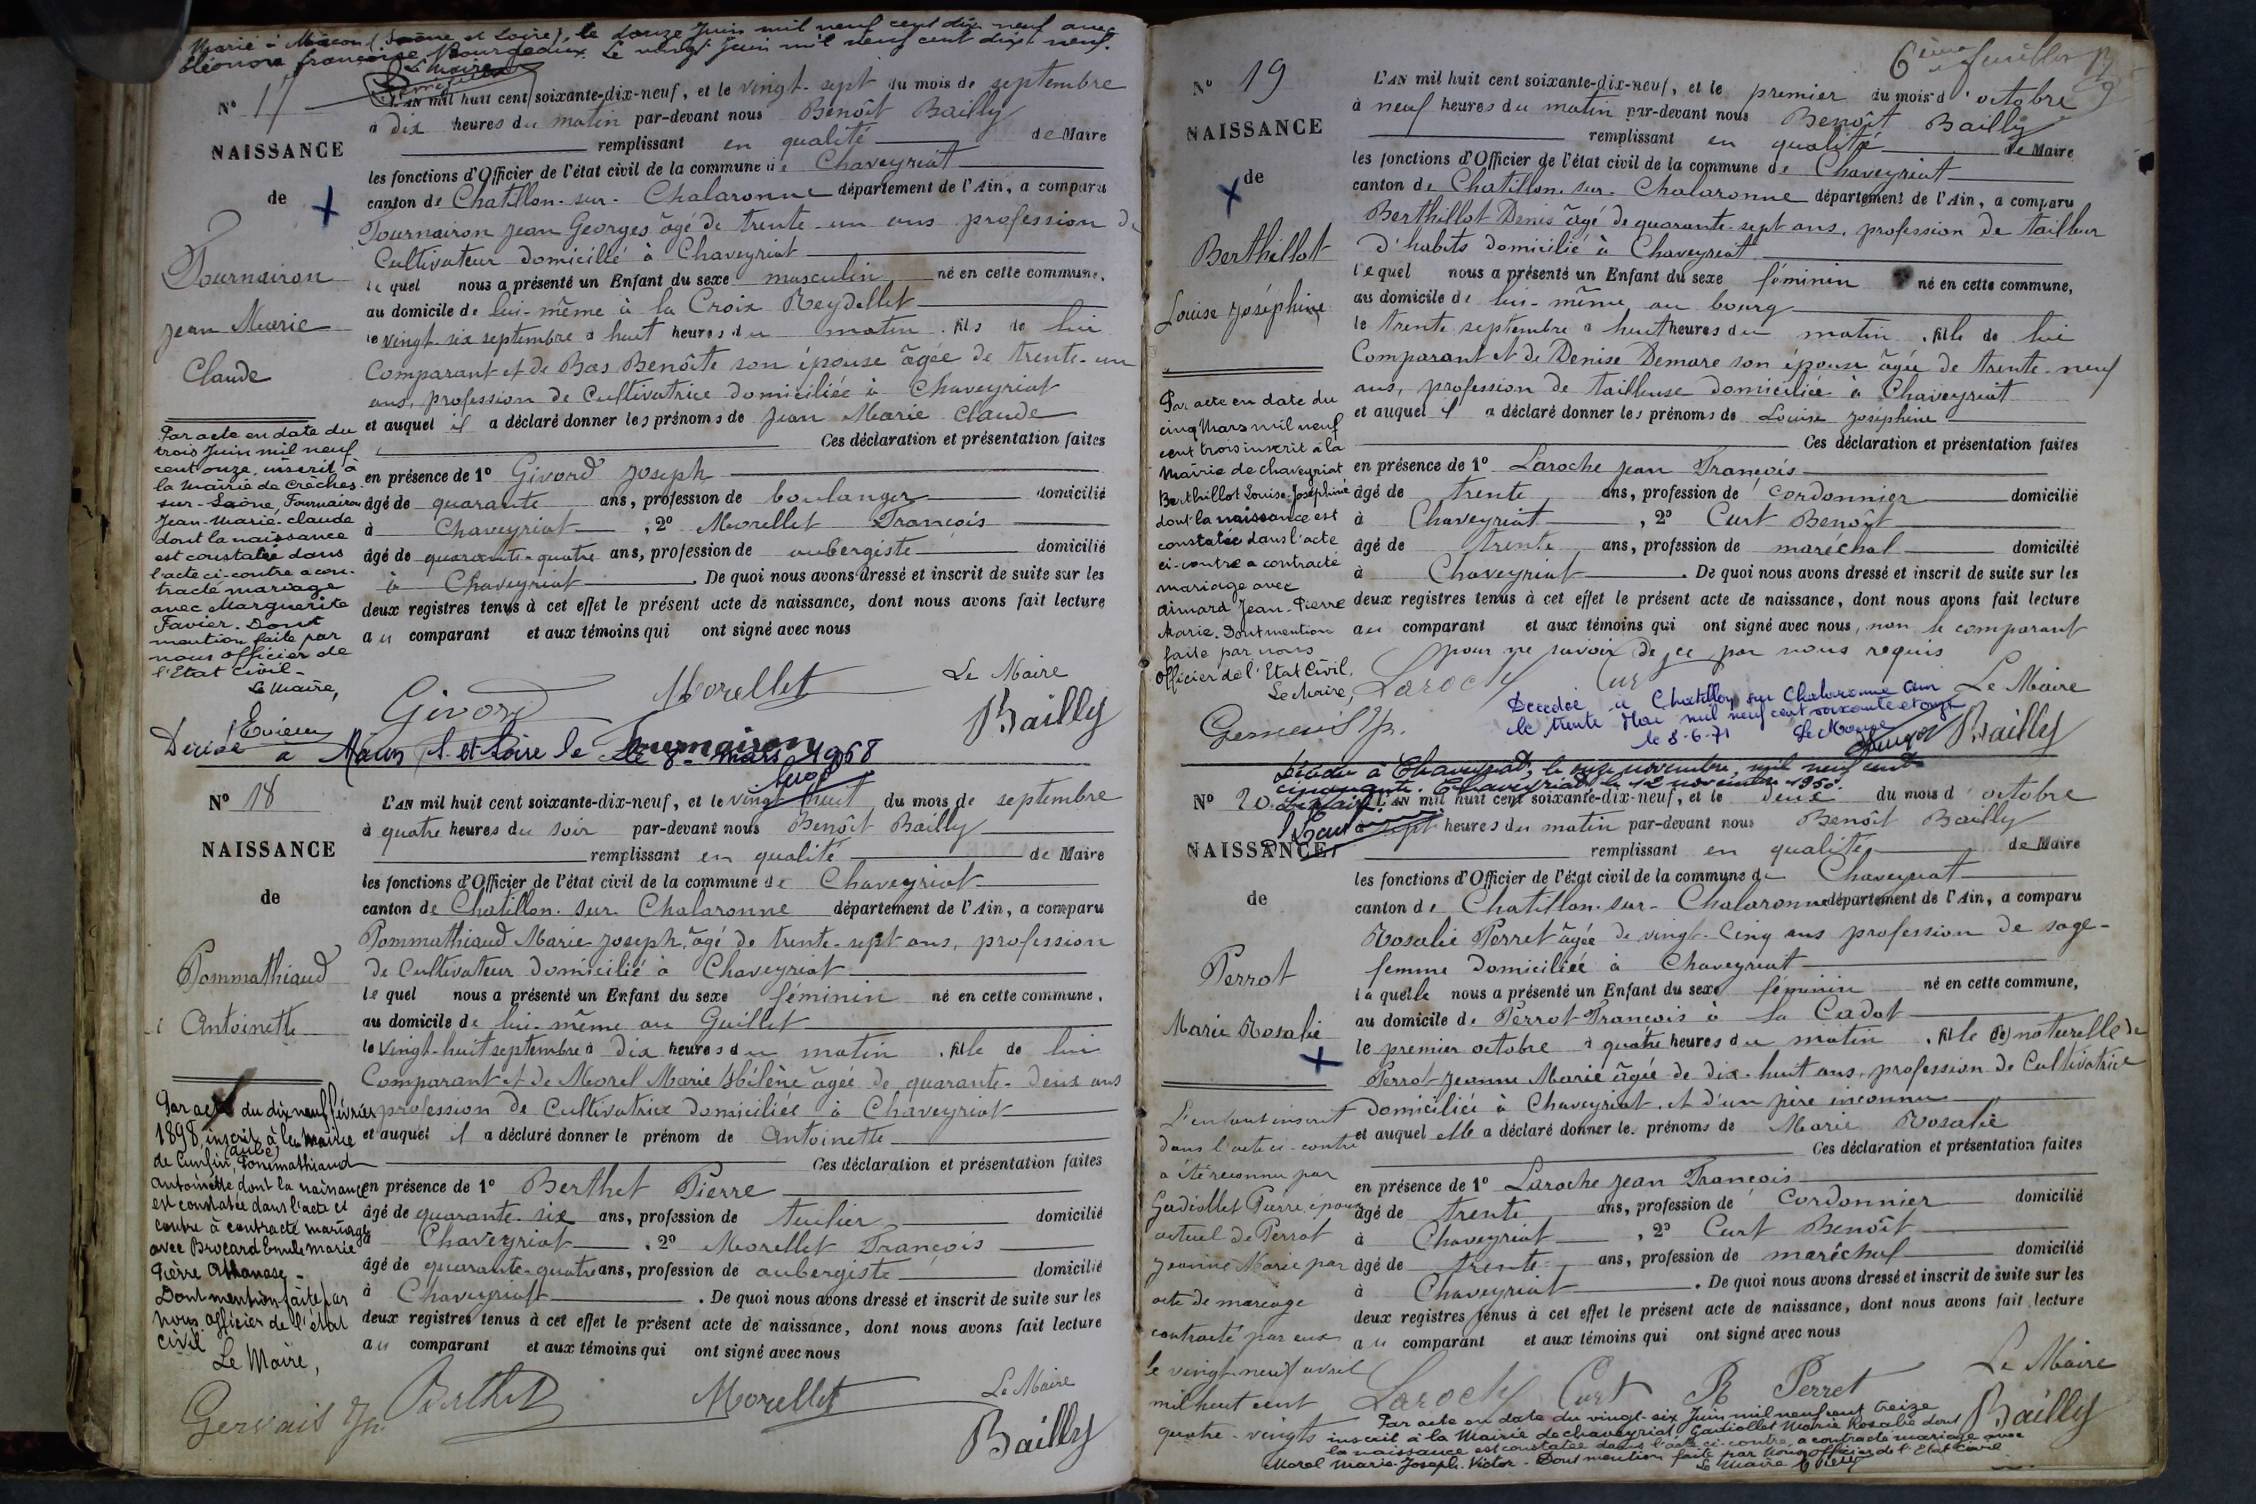 Marié à Mâcon (Saône et Loire), le douze Juin mil neuf cent dix neuf avec
Eléonore françoise Bourgeaux. Le vingt Juin mil neuf cent dix neuf.
Le Maire
N° 17
NAISSANCE
de
Fournairon
Jean Marie
Claude
L'AN mil huit cent soixante-dix-neuf, et le vingt-sept du mois de septembre
à dix heures du matin par-devant nous Benoît Bailly
remplissant en qualité de Maire
les fonctions d'Officier de l'état civil de la commune de Chaveyriat
canton de Chatillon-sur-Chalaronne département de l'Ain, a comparu
Fournairon Jean Georges âgé de trente-un ans profession de
Cultivateur domicilié à Chaveyriat
lequel nous a présenté un Enfant du sexe masculin né en cette commune.
au domicile de lui-même à la Croix Reydellet
le vingt-six septembre à huit heures du matin. fils de lui
Comparant et de Bas Benoîte son épouse âgée de trente-un
ans, profession de Cultivatrice domiciliée à Chaveyriat
et auquel il a déclaré donner les prénoms de Jean Marie Claude
Ces déclaration et présentation faites
en présence de 1° Givord Joseph
âgé de quarante ans, profession de boulanger domicilié
à Chaveyriat, 2° Morellet François
âgé de quarante-quatre ans, profession de aubergiste domicilié
à Chaveyriat. De quoi nous avons dressé et inscrit de suite sur les
deux registres tenus à cet effet le présent acte de naissance, dont nous avons fait lecture
au comparant et aux témoins qui ont signé avec nous
Par acte en date du
trois Juin mil neuf
cent onze, inscrit à
la Mairie de Crêches-
sur-Saône, Fournairon
Jean-Marie-Claude
dont la naissance
est constatée dans
l'acte ci-contre a con-
tracté mariage
avec Marguerite
Favier. Dont
mention faite par
nous Officier de
l'Etat civil-
Le Maire,
Givord Morellet Le Maire
Fournairon Bailly
Décédé à Mâcon S. et Loire le 8 mars 1968
N° 18
NAISSANCE
de
Pommathiaud
Antoinette
L'AN mil huit cent soixante-dix-neuf, et le vingt huit du mois de septembre
à quatre heures du soir par-devant nous Benoît Bailly
remplissant en qualité de Maire
les fonctions d'Officier de l'état civil de la commune de Chaveyriat
canton de Chatillon-sur-Chalaronne département de l'Ain, a comparu
Pommathiaud Marie Joseph, âgé de trente-sept ans, profession
de Cultivateur domicilié à Chaveyriat
lequel nous a présenté un Enfant du sexe féminin né en cette commune.
au domicile de lui-même au Guillet
le vingt-huit septembre à dix heures du matin. fille de lui
Comparant et de Morel Marie Hélène âgée de quarante-deux ans
profession de Cultivatrice domiciliée à Chaveyriat
et auquel il a déclaré donner le prénom de Antoinette
Ces déclaration et présentation faites
en présence de 1° Berthet Pierre
âgé de quarante-six ans, profession de tuilier domicilié
à Chaveyriat, 2° Morellet François
âgé de quarante-quatre ans, profession de aubergiste domicilié
à Chaveyriat. De quoi nous avons dressé et inscrit de suite sur les
deux registres tenus à cet effet le présent acte de naissance, dont nous avons fait lecture
au comparant et aux témoins qui ont signé avec nous
Par acte du dix neuf février
1898, inscrit à la Mairie
(aube)
de Cunfin, Pommathiaud
Antoinette dont la naissance
est constatée dans l'acte ci
contre à contracté mariage
avec Brocard Emile Marie
Pierre Athanase-
Dont mention faite par
nous officier de l'état
civil
Le Maire,
Gervais Jn. Berthet Morellet Le Maire
Bailly
6ième feuillet
N° 19
NAISSANCE
de
Berthillot
Louise Joséphine
L'AN mil huit cent soixante-dix-neuf, et le premier du mois d'octobre
à neuf heures du matin par-devant nous Benoît Bailly
remplissant en qualité de Maire
les fonctions d'Officier de l'état civil de la commune de Chaveyriat
canton de Chatillon-sur-Chalaronne département de l'Ain, a comparu
Berthillot Denis âgé de quarante-sept ans, profession de tailleur
d'habits domicilié à Chaveyriat
lequel nous a présenté un Enfant du sexe féminin né en cette commune,
au domicile de lui-même au bourg
le trente septembre à huit heures du matin. fille de lui
Comparant et de Denise Demare son épouse âgée de trente-neuf
ans, profession de tailleuse domiciliée à Chaveyriat
et auquel il a déclaré donner les prénoms de Louise Joséphine
Ces déclaration et présentation faites
en présence de 1° Laroche Jean François
âgé de trente ans, profession de cordonnier domicilié
à Chaveyriat, 2° Curt Benoît
âgé de trente ans, profession de maréchal domicilié
à Chaveyriat. De quoi nous avons dressé et inscrit de suite sur les
deux registres tenus à cet effet le présent acte de naissance, dont nous avons fait lecture
au comparant et aux témoins qui ont signé avec nous, non le comparant
pour ne savoir de ce par nous requis
Par acte en date du
cinq Mars mil neuf
cent trois inscrit à la
Mairie de Chaveyriat
Berthillot Louise-Joséphine
dont la naissance est
constatée dans l'acte
ci-contre a contracté
mariage avec
Aimard Jean-Pierre
Marie. Dont mention
faite par nous
Officier de l'Etat Civil.
Le Maire,
Laroch Curt Le Maire
Bailly
Décédée à Chatillon sur Chalaronne Ain
le trente Mai mil neuf cent soixante et onze
le 8-6-71 Le Maire
Décédée à Chaveyriat, le onze novembre mil neuf cent
cinquante. Chaveyriat le 12 novembre 1950.
Le Maire
N° 20
NAISSANCE
de
Perrot
Marie Rosalie
L'AN mil huit cent soixante-dix-neuf, et le deux du mois d'octobre
à sept heures du matin par-devant nous Benoît Bailly
remplissant en qualité de Maire
les fonctions d'Officier de l'état civil de la commune de Chaveyriat
canton de Chatillon-sur-Chalaronne département de l'Ain, a comparu
Rosalie Perret âgée de vingt-cinq ans profession de sage-
femme domiciliée à Chaveyriat
laquelle nous a présenté un Enfant du sexe féminin né en cette commune,
au domicile de Perrot François à la Cadot
le premier octobre à quatre heures du matin. fille (de) naturelle de
Perrot Jeanne Marie âgée de dix-huit ans, profession de Cultivatrice
domiciliée à Chaveyriat, et d'un père inconnu
et auquel elle a déclaré donner les prénoms de Marie Rosalie
Ces déclaration et présentation faites
en présence de 1° Laroche Jean François
âgé de trente ans, profession de cordonnier domicilié
à Chaveyriat, 2° Curt Benoît
âgé de trente ans, profession de maréchal domicilié
à Chaveyriat. De quoi nous avons dressé et inscrit de suite sur les
deux registres tenus à cet effet le présent acte de naissance, dont nous avons fait lecture
au comparant et aux témoins qui ont signé avec nous
L'enfant inscrit
dans l'acte ci-contre
a été reconnu par
Gadiollet Pierre, époux
actuel de Perrot
Jeanne Marie par
acte de mariage
contracté par eux
le vingt-neuf avril
mil huit cent
quatre-vingts
Laroch Curt R Perret Le Maire
Bailly
Par acte en date du vingt-six Juin mil neuf cent treize
inscrit à la Mairie de Chaveyriat, Gadiollet Marie Rosalie dont
la naissance est constatée dans l'acte ci-contre, a contracté mariage avec
Morel Marie-Joseph-Victor - Dont mention faite par nous Officier de l'Etat Civil
Le Maire